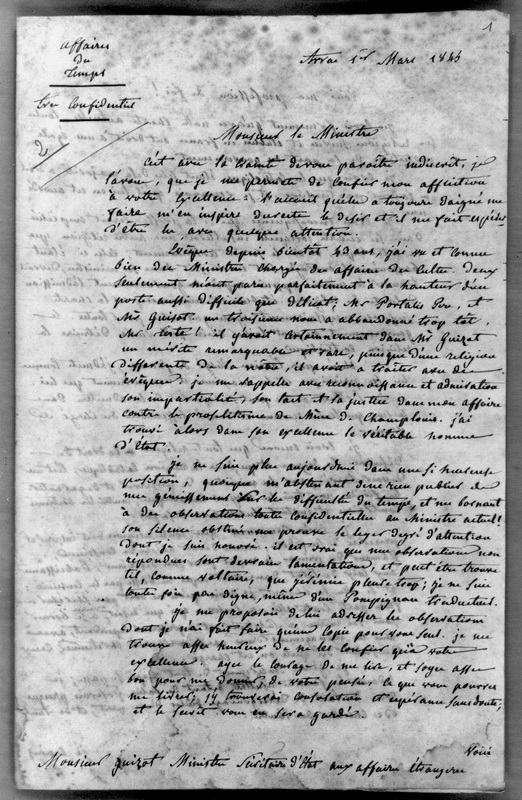 1
affaires
du
temps
très Confidentiel
2
Arras 1er Mars 1843
Monsieur le Ministre
C'est avec la crainte de vous paraître indiscrèt, je
l'avoue, que je me permets de confier mon affliction
à votre Excellence. l'accueil qu'elle a toujours daigné me
faire m'en inspire du reste le desir et il me fait espérer
d'être lu, avec quelque attention.
Evêque depuis bientot 42 ans, j'ai vu et connu
bien des Ministres chargés des affaires des Cultes. deux
seulement m'ont paru parfaitement à la hauteur d'un
poste aussi difficile que délicat, Mr Portalis Ier, et
Mr Guizot. un troisieme nous a abbandonné trop tôt,
Mr Teste! il y avait certainement dans Mr Guizot
un mérite remarquable et rare, puisque d'une religion
differente de la nôtre, il avait à traiter avec des
evêques. je me rappelle avec reconnaissance et admiration
son impartialité, son tact et sa justice dans mon affaire
contre le proselitisme de Mme D. Champlouis. j'ai
trouvé alors dans son excellence le véritable homme
d'Etat.
je ne suis plus aujourd'hui dans une si heureuse
position, quoique m'abstenant de rien publier de
mes gémissemens sur les difficultés du temps, et me bornant
à des observations toutes Confidentielles au Ministre actuel!
son silence obstiné me prouve le leger degré d'attention
dont je suis honoré. il est vrai que mes observations non
répondues sont devenues lamentations, et peut être trouve
t'il, comme voltaire, que jérémie pleure trop; je ne suis
toute fois pas digne, même d'un Pompignan traducteur.
je me proposais de lui adresser les observations
dont je n'ai fait faire qu'une Copie pour vous seul. je me
trouve assez heureux de ne les confier qu'à votre
excellence. ayez le courage de me lire, et soyez assez
bon pour me donner, de votre pensée, ce que vous pourrez
me livrer; j'y trouverai consolation et espérance sans doute,
et le secret vous en sera gardé.
Voici
Monsieur guizot Ministre Secrétaire d'Etat aux affaires étrangères